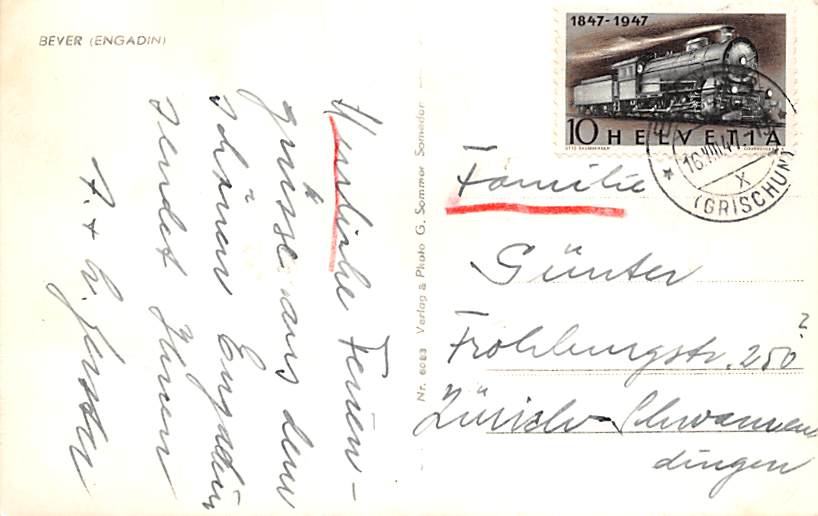 BEVER (ENGADIN)
Herzliche Ferien-
grüsse aus dem
schönen Engadin
sendet Ihnen
Nr. 6083 Verlag & Photo G. Sommer Samedan
1847-1947
10 HELVETIA
16.VIII.47
X
(GRISCHUN)
Familie
Günter
Frohburgstr. 250?
Zürich-Schwamen
dingen